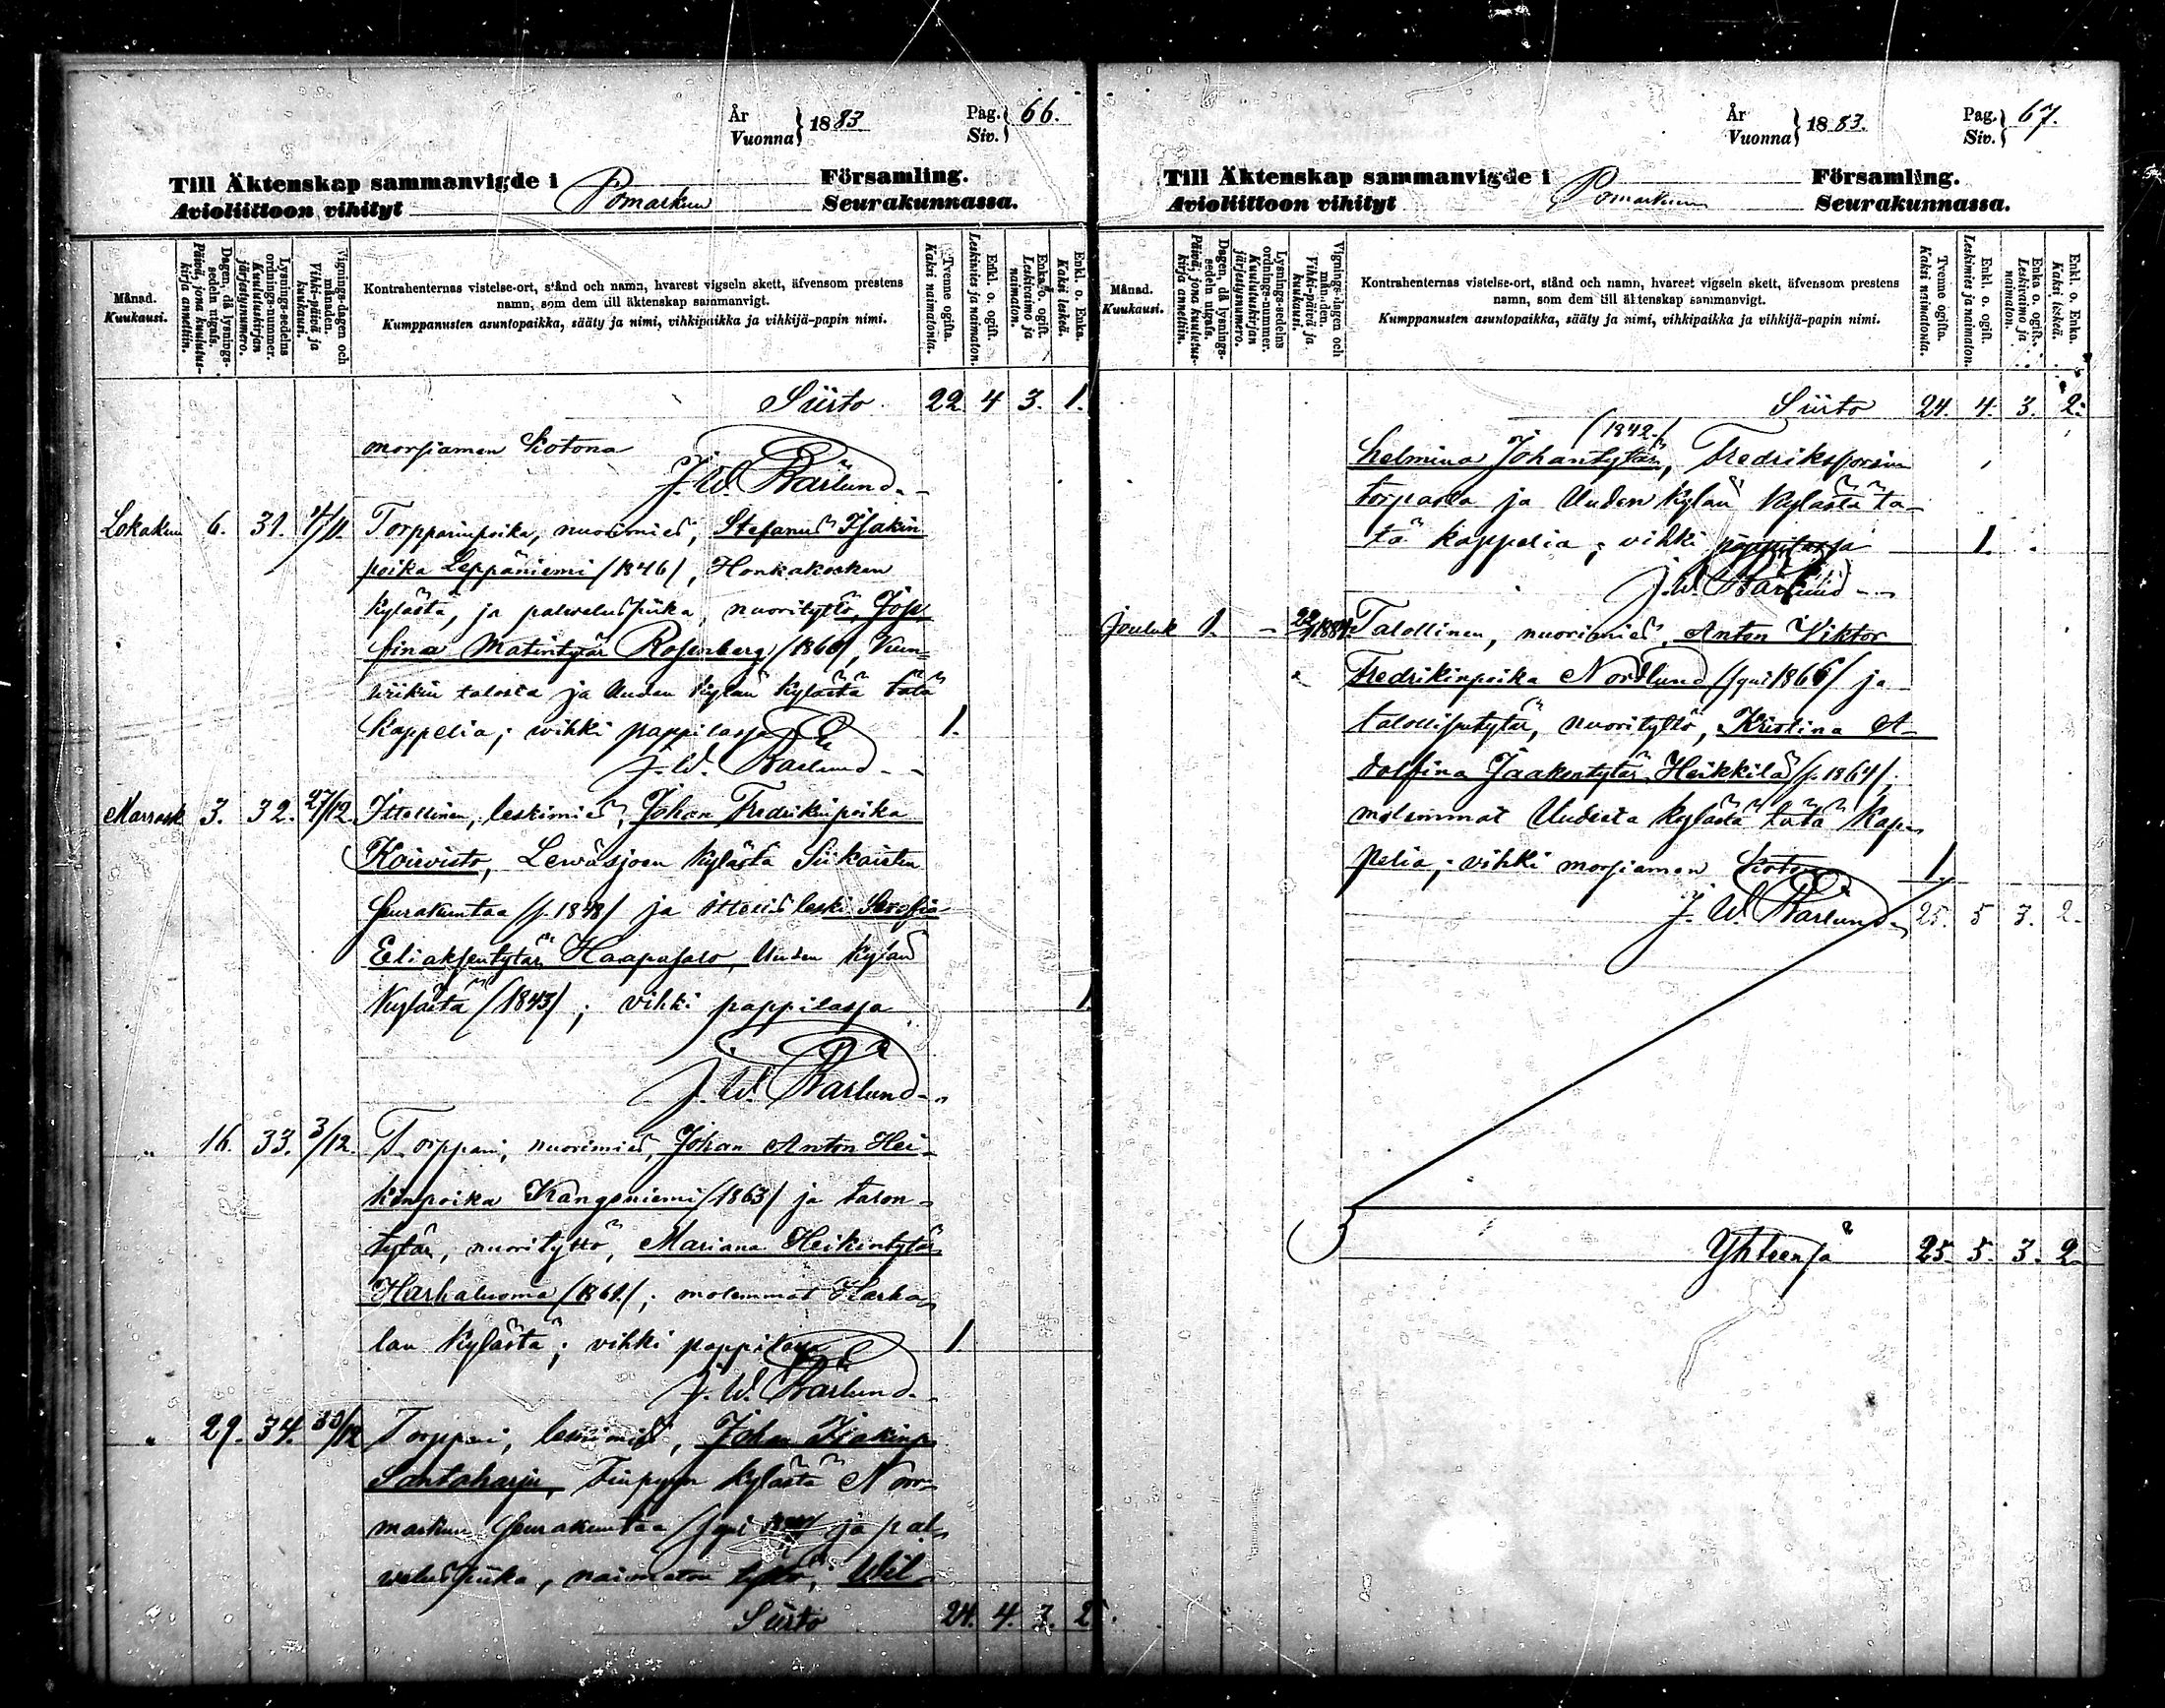 År
Vuonna } 1883 Pag. Siv. } 66.
Till Äktenskap sammanvigde i Pomarkun Församling.
Avioliittoon vihityt Seurakunnassa.
Månad. Kuukausi.
Dagen, då lysnings-sedeln utgafs. Päivä, jona kuulutus-kirja annettiin.
Lysnings-sedelns ordnings-nummer. Kuulutuskirjan järjestysnumero.
Vignings-dagen och månaden. Vihki-päivä ja kuukausi.
Kontrahenternas vistelse-ort, stånd och namn, hvarest vigseln skett, äfvensom prestens
namn, som dem till äktenskap sammanvigt.
Kumppanusten asuntopaikka, sääty ja nimi, vihkipaikka ja vihkijä-papin nimi.
Tvenne ogifta. Kaksi naimatonta.
Enkl. o. ogift. Leskimies ja naimaton.
Enka o. ogift. Leskivaimo ja naimaton.
Enkl. o. Enka. Kaksi leskeä.
Siirto 22 4 3. 1.
morsiamen kotona
J. W. Bärlund.
Lokakuu 6. 31. 4/11. Torpparinpoika, nuorimies, Stefanus Isakin
poika Leppäniemi (1846), Honkakosken
kylästä, ja palveluspiika, nuorityttö, Jose
fina Matintytär Rosenberg (1860),
talosta ja Uuden kylän kylästä tätä
kappelia; vihki pappilassa 1.
J. W. Bärlund.
Marrask 3. 32. 27/12. Itsellinen, leskimies, Johan Fredrikinpoika
Koivisto, Leväsjoen kylästä Siikaisten
seurakuntaa (s. 1848) ja itsellis leski Serafia
Eliaksentytär Haapasalo, Uuden kylän
kylästä (1843); vihki pappilassa 1.
J. W. Bärlund.
" 16. 33. 3/12. Torppari, nuorimies, Johan Anton Hei-
kinpoika Kangasniemi (1863) ja talon-
tytär, nuorityttö, Mariana Heikintytär
Harhaluoma (1861.); molemmat Harha-
lan kylästä; vihki pappilassa 1
J. W. Bärlund.
" 29. 34. 30/12 Torppari, leskimies, Johan Isakinp
Santaharju, Finpyyn kylästä Norr-
markun seurakuntaa (syni ja pal-
veluspiika, naimaton tyttö, Wil-
Siirto 24. 4. 3. 2
År
Vuonna } 1883. Pag. Siv. } 67.
Till Äktenskap sammanvigde i Pomarkun Församling.
Avioliittoon vihityt Seurakunnassa.
Månad. Kuukausi.
Dagen, då lysnings-sedeln utgafs. Päivä, jona kuulutus-kirja annettiin.
Lysnings-sedelns ordnings-nummer. Kuulutuskirjan järjestysnumero.
Vignings-dagen och månaden. Vihki-päivä ja kuukausi.
Kontrahenternas vistelse-ort, stånd och namn, hvarest vigseln skett, äfvensom prestens
namn, som dem till äktenskap sammanvigt.
Kumppanusten asuntopaikka, sääty ja nimi, vihkipaikka ja vihkijä-papin nimi.
Tvenne ogifta. Kaksi naimatonta.
Enkl. o. ogift. Leskimies ja naimaton.
Enka o. ogift. Leskivaimo ja naimaton.
Enkl. o. Enka. Kaksi leskeä.
Siirto 24. 4. 3. 2.
(1842.)
helmina Johantytär,
torpasta ja Uuden kylän kylästä tä-
tä kappelia; vihki pappilassa 1.
J. W. Bärlund
Jouluk 1. - Talollinen, nuorimies, Anton Viktor
Fredrikinpoika Nordlund (syni 1866) ja
talollisentytär, nuorityttö, Kristina A-
dolfina Jaakontytär Heikkilä (s. 1864);
molemmat Uudesta kylästä tätä kap-
pelia; vihki morsiamen kotona 1.
J. W. Bärlund. 25. 5 3. 2.
Yhteensä 25. 5. 3. 2